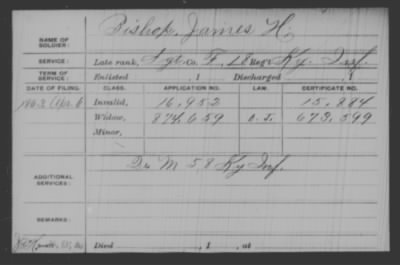 NAME OF SOLDIER: Bishop, James H.
SERVICE: Late rank, Sgt Co. F, 18 Reg't Ky. Inf.
TERM OF SERVICE: Enlisted , 1 Discharged , 1
DATE OF FILING. CLASS. APPLICATION NO. LAW. CERTIFICATE NO.
Apr. 6 Invalid, 16,952 15,884
Widow, 874,659 673,599
Minor,
ADDITIONAL SERVICES: M 58 Ky Inf.
REMARKS:
Died , 1 , at